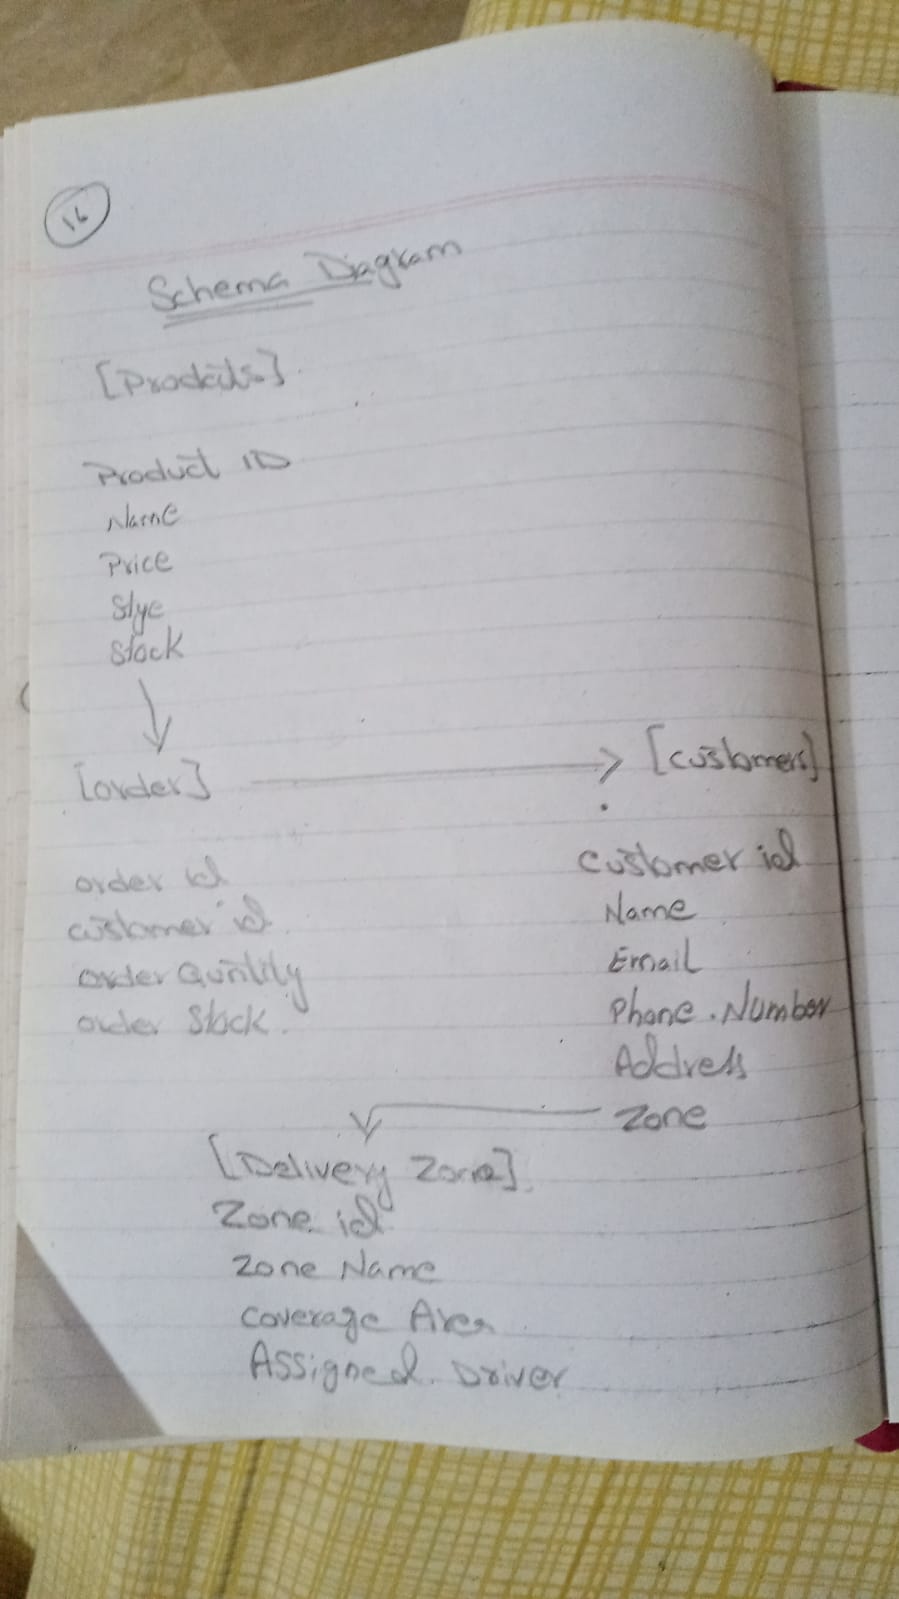 16
Schema Diagram
[Products]
Product ID
Name
Price
Slye
Stock
[order]
[customers]
order id
customer id
order Quntity
order Stock.
customer id
Name
Email
Phone.Number
Address
Zone
[Delivery Zone]
Zone id
Zone Name
Coverage Area
Assigned. Driver